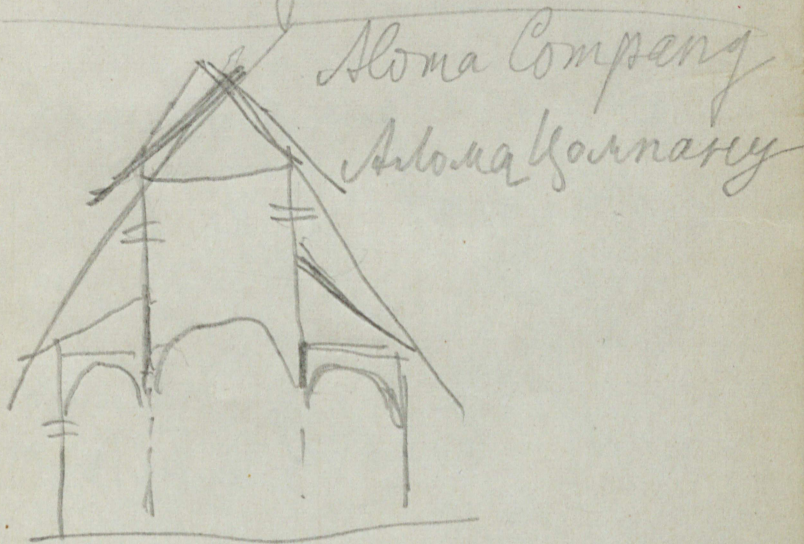 Aloma Company
Алома Цомпану